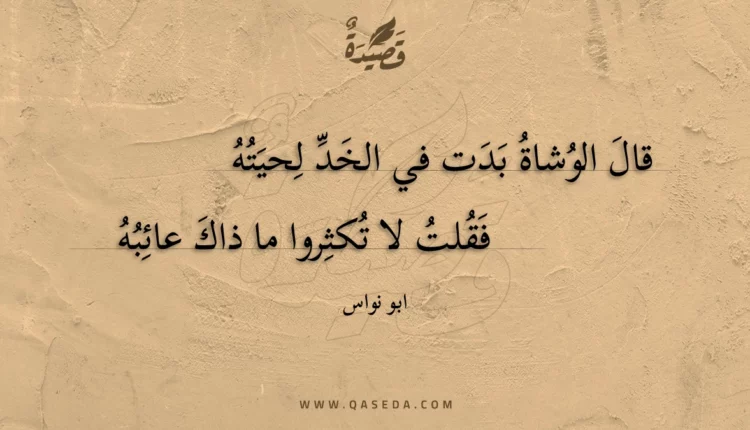 قَصِيدَةٌ
قالَ الوُشاةُ بَدَت في الخَدِّ لِحيَتُهُ
فَقُلتُ لا تُكثِروا ما ذاكَ عائِبُهُ
ابو نواس
WWW.QASEDA.COM